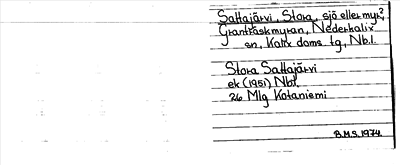 Sattajärvi, Stora, sjö eller myr?,
Granträskmyran, Nederkalix
sn, Kalix doms. tg, Nb.l.
Stora Sattajärvi
ek (1951) Nbl.
26 Mlg Kotaniemi
B.M.S. 1974.